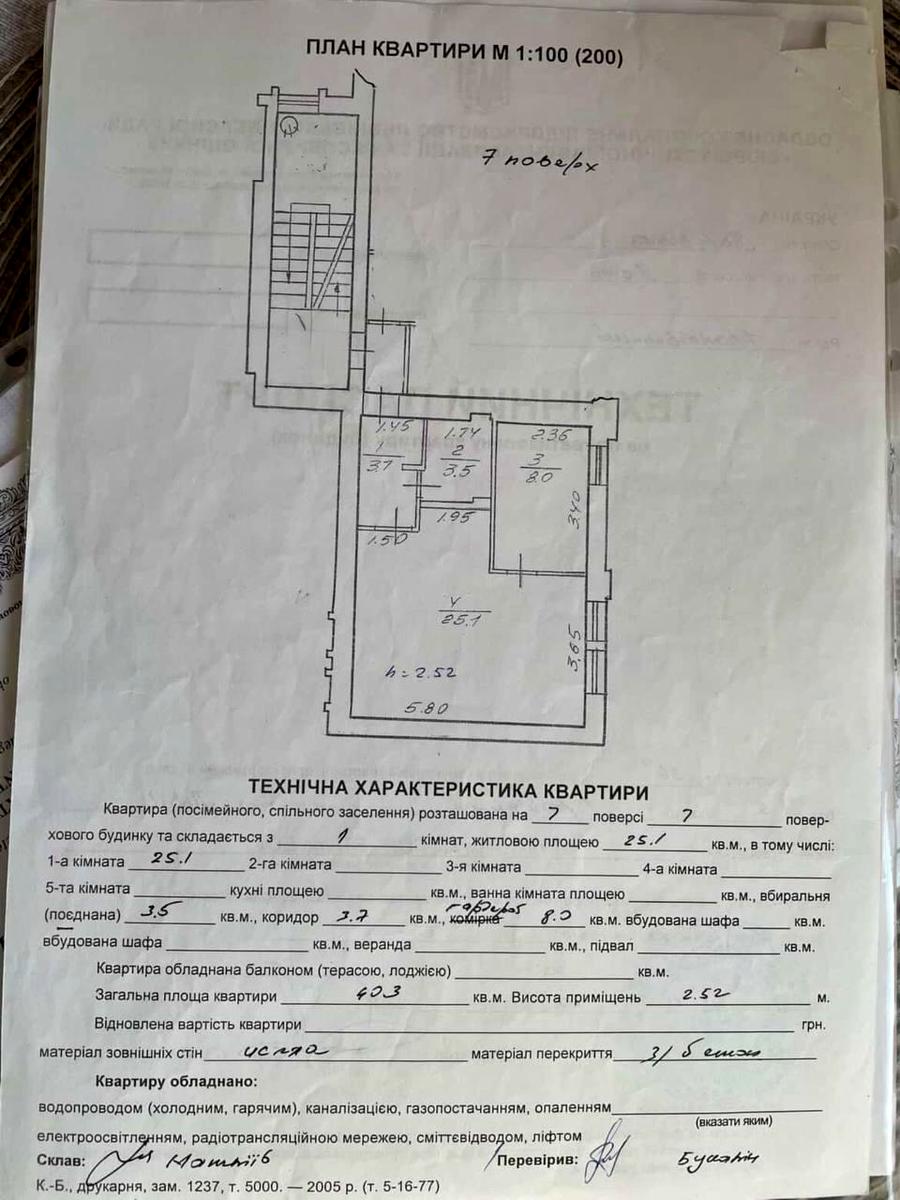 ПЛАН КВАРТИРИ М 1:100 (200)
7 поверх
1.45
1.74
2.36
1
3.7
2
3.5
3
8.0
3.40
1.95
1.50
4
25.1
3.65
h = 2.52
5.80
ТЕХНІЧНА ХАРАКТЕРИСТИКА КВАРТИРИ
Квартира (посімейного, спільного заселення) розташована на 7 поверсі 7 повер-
хового будинку та складається з 1 кімнат, житловою площею 25.1 кв.м., в тому числі:
1-а кімната 25.1 2-га кімната 3-я кімната 4-а кімната
5-та кімната кухні площею кв.м., ванна кімната площею кв.м., вбиральня
гардероб
(поєднана) 3.5 кв.м., коридор 3.7 кв.м., комірка 8.0 кв.м. вбудована шафа кв.м.
вбудована шафа кв.м., веранда кв.м., підвал кв.м.
Квартира обладнана балконом (терасою, лоджією) кв.м.
Загальна площа квартири 40.3 кв.м. Висота приміщень 2.52 м.
Відновлена вартість квартири грн.
матеріал зовнішніх стін цегла матеріал перекриття з/бетон
Квартиру обладнано:
водопроводом (холодним, гарячим), каналізацією, газопостачанням, опаленням
(вказати яким)
електроосвітленням, радіотрансляційною мережею, сміттєвідводом, ліфтом
Склав: Перевірив:
К.-Б., друкарня, зам. 1237, т. 5000. — 2005 р. (т. 5-16-77)